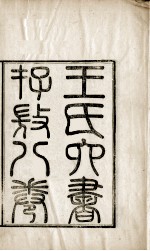 王氏六書
存殳八卷